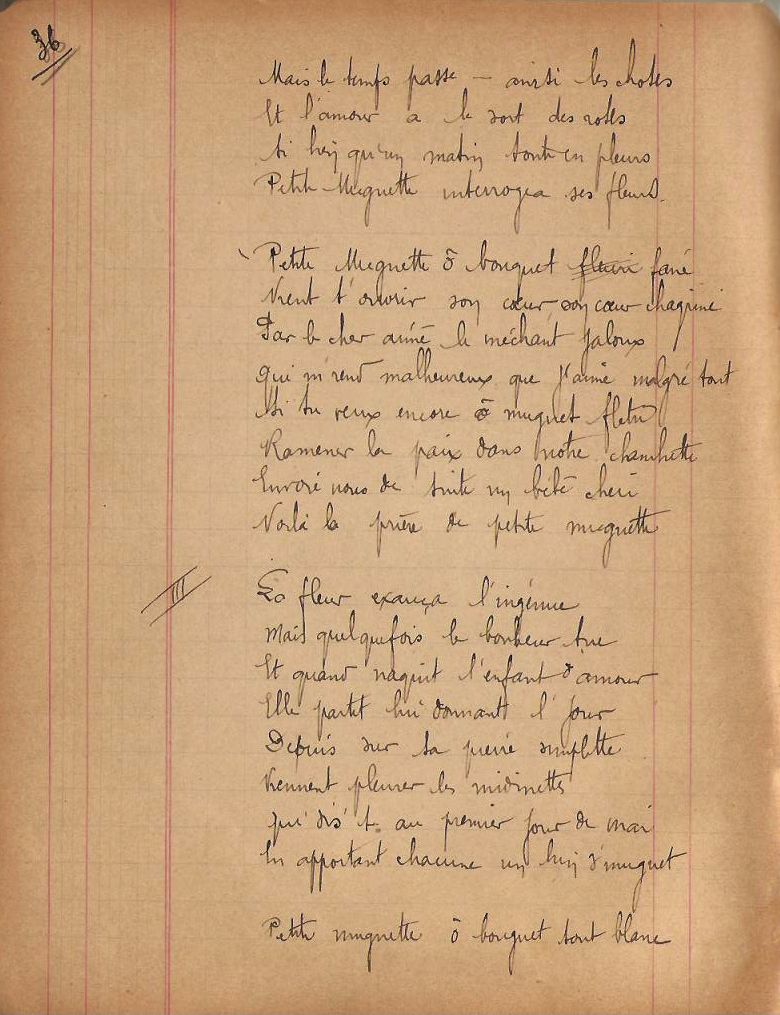 36
Mais le temps passe – ainsi les choses
Et l'amour a le sort des roses
Si bien qu'un matin toute en pleurs
Petite Muguette interrogea ses fleurs.
Petite Muguette ô bouquet fleuri fané
Vient t'ouvrir son cœur, son cœur chagriné
Par le cher aimé le méchant jaloux
Qui m'rend malheureux que j'aime malgré tout
Si tu veux encore ô muguet fletri
Ramener la paix dans notre chambrette
Envoie nous de suite un bébé cheri
Voilà la prière de petite muguette
III
La fleur exauça l'ingénue
Mais quelquefois le bonheur tue
Et quand naquit l'enfant d'amour
Elle partit lui donnant l'jour
Depuis sur sa pierre simplette
Viennent pleurer les midinettes
qui dis't au premier jour de mai
En apportant chacune un brin d'muguet
Petite muguette ô bouquet tout blanc